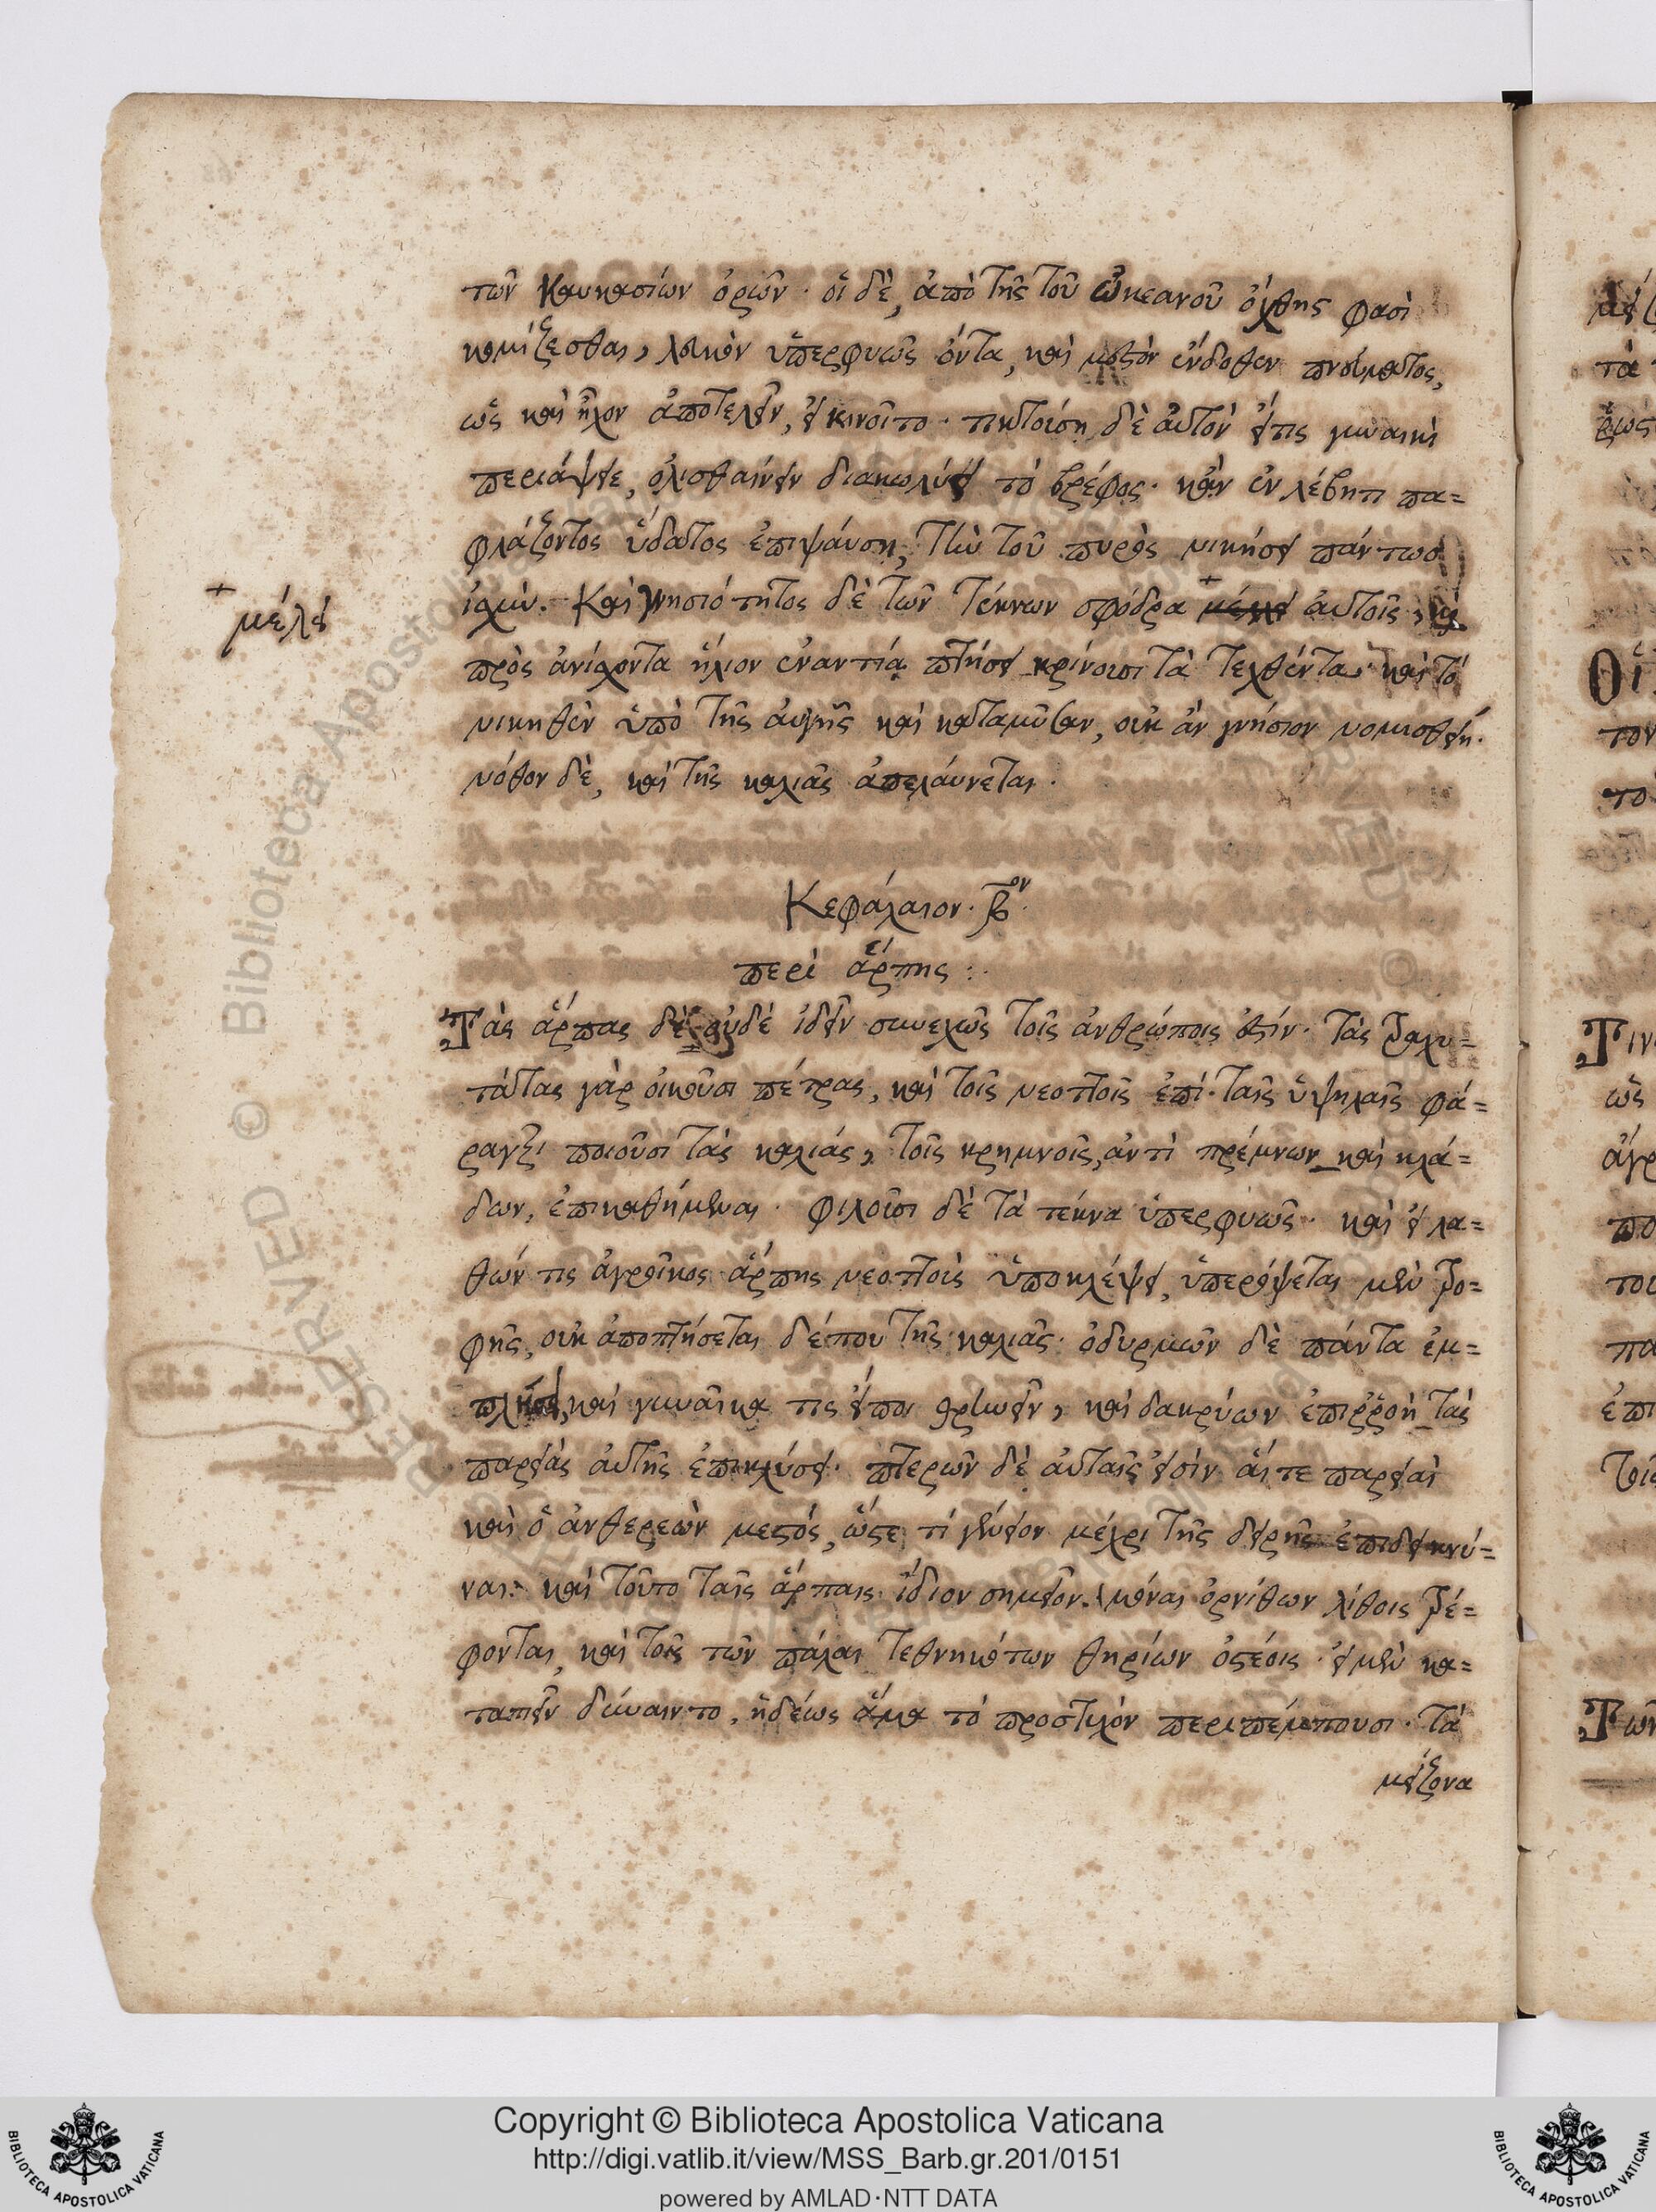 τῶν Καυκασίων ὀρῶν· οἱ δὲ, ἀπὸ τῆς τοῦ ὠκεανοῦ ὄχθης φασὶ
κομίζεσθαι, λευκὸν ὑπερφυῶς ὄντα, καὶ μεστὸν ἔνδοθεν πνεύματος,
ὡς καὶ ἦχον ἀποτελεῖν, εἰ κινοῖτο· τικτούσῃ δὲ αὐτὸν εἴτις γυναικὶ
περιάψει, ὀλισθαίνειν διακωλύει τὸ βρέφος· κἂν ἐν λέβητι πα=
φλάζοντος ὕδατος ἐπιψαύσῃ, τὴν τοῦ πυρὸς νικήσει πάντως
ἰσχύν. Καὶ γνησιότητος δὲ τῶν τέκνων σφόδρα αὐτοῖς,
+ μέλει
πρὸς ἀνίσχοντα ἥλιον ἐναντία πτήσει κρίνουσι τὰ τεχθέντα· καὶ τὸ
νικηθὲν ὑπὸ τῆς αὐγῆς καὶ καταμῦσαν, οὐκ ἂν γνήσιον νομισθείη·
νόθον δὲ, καὶ τῆς καλιᾶς ἀπελαύνεται.
Κεφάλαιον. β ον.
περὶ ἅρπης:.
Τὰς ἅρπας δὲ οὐδὲ ἰδεῖν συνεχῶς τοῖς ἀνθρώποις ἐστίν· τὰς τραχυ=
τάτας γὰρ οἰκοῦσι πέτρας, καὶ τοῖς νεοττοῖς ἐπὶ ταῖς ὑψηλαῖς φά=
ραγξι ποιοῦσι τὰς καλιάς, τοῖς κρημνοῖς, ἀντὶ πρέμνων καὶ κλά=
δων, ἐπικαθήμεναι. φιλοῦσι δὲ τὰ τέκνα ὑπερφυῶς· καὶ εἰ λα=
θών τις ἀγροῖκος ἅρπης νεοττοὺς ὑποκλέψει, ὑπερόψεται μὲν τρο=
φῆς, οὐκ ἀποπτήσεται δέπου τῆς καλιᾶς· ὀδυρμῶν δὲ πάντα ἐμ=
πλήσει, καὶ γυναῖκα τις εἴποι θρηνεῖν, καὶ δακρύων ἐπιρροὴ τὰς
παρειὰς αὐτῆς ἐπικλύσει· πτερῶν δὲ αὐταῖς εἰσὶν αἵ τε παρειαὶ
καὶ ὁ ἀνθερεὼν μεστός, ὥστε τι γένειον μέχρι τῆς δειρῆς ἐπιδεικνύ=
ναι· καὶ τοῦτο ταῖς ἅρπαις ἴδιον σημεῖον. μόναι ὀρνίθων λίθοις τρέ=
φονται, καὶ τοῖς τῶν πάλαι τεθνηκότων θηρίων ὀστέοις· εἰ μὲν κα=
ταπιεῖν δύναιντο, ἡδέως ἅμα τὸ προστυχὸν περιπέμπουσι· τὰ
μείζονα
Copyright © Biblioteca Apostolica Vaticana
http://digi.vatlib.it/view/MSS_Barb.gr.201/0151
powered by AMLAD·NTT DATA